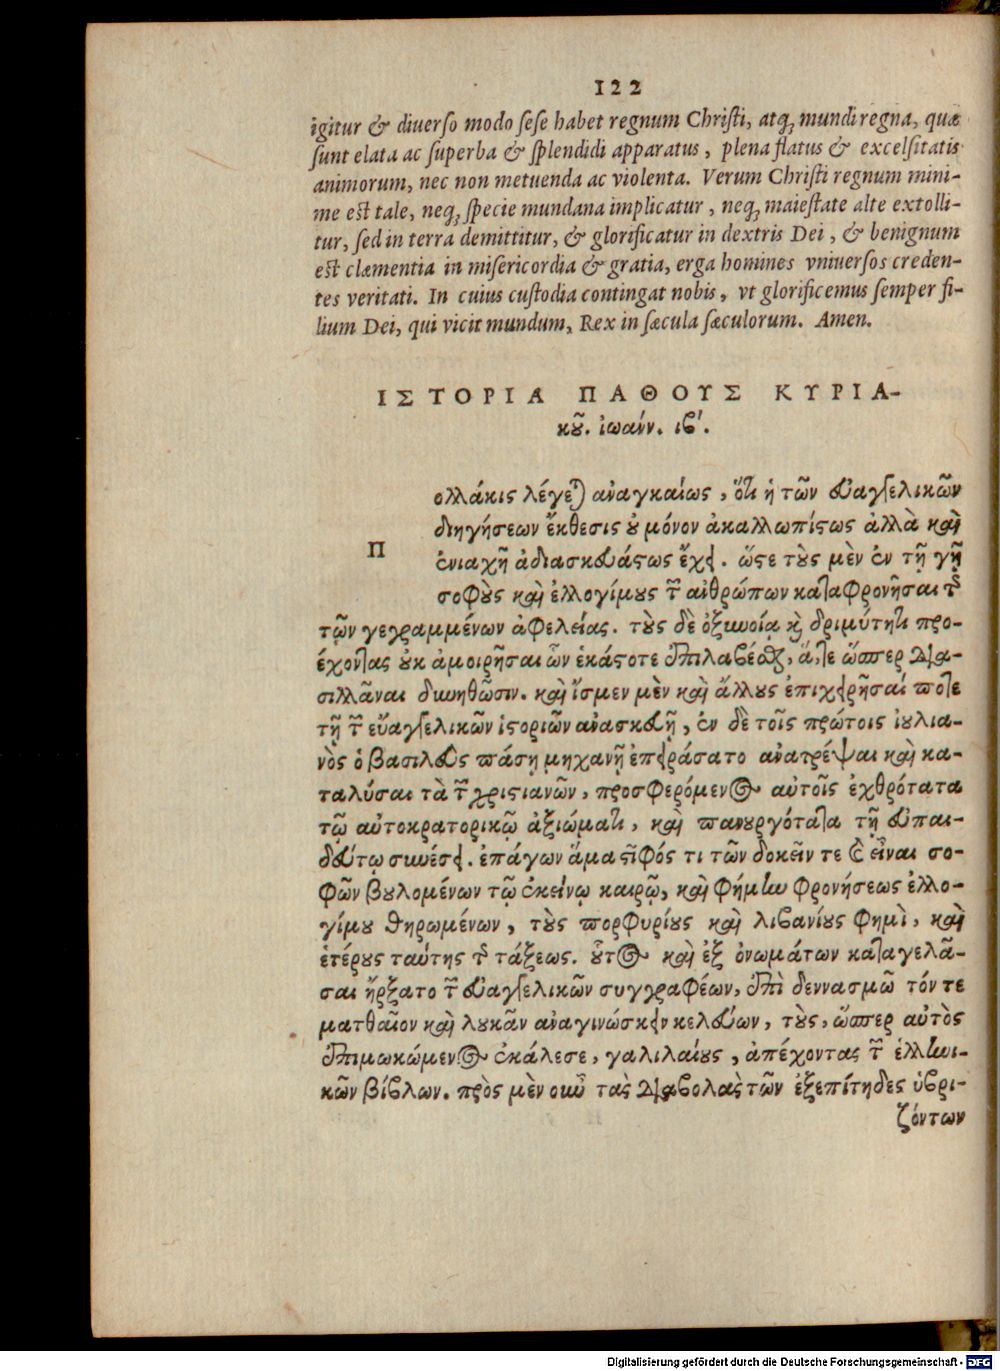 122
igitur & diuerso modo sese habet regnum Christi, atq; mundi regna, quæ
sunt elata ac superba & splendidi apparatus, plena flatus & excelsitatis
animorum, nec non metuenda ac violenta. Verum Christi regnum mini-
me est tale, neq; specie mundana implicatur, neq; maiestate alte extolli-
tur, sed in terra demittitur, & glorificatur in dextris Dei, & benignum
est clæmentia in misericordia & gratia, erga homines vniuersos creden-
tes veritati. In cuius custodia contingat nobis, vt glorificemus semper fi-
lium Dei, qui vicit mundum, Rex in sæcula sæculorum. Amen.
ΙΣΤΟΡΙΑ ΠΑΘΟΥΣ ΚΥΡΙΑ-
κοῦ. ἰωάνν. ιβ΄.
Πολλάκις λέγεται ἀναγκαίως, ὅτι ἡ τῶν εὐαγγελικῶν
διηγήσεων ἔκθεσις οὐ μόνον ἀκαλλωπίστως ἀλλὰ καὶ
ἐνιαχῆ ἀδιασκεύάστως ἔχει. ὥστε τοὺς μὲν ἐν τῇ γῇ
σοφοὺς καὶ ἐλλογίμους τῶν ἀνθρώπων καταφρονῆσαι τῆς
τῶν γεγραμμένων ἀφελείας. τοὺς δὲ ὀξυνοίᾳ καὶ δριμύτητι προ-
έχοντας οὐκ ἀμοιρῆσαι ὧν ἑκάστοτε ἐπιλαβέσθαι, ἅτε ὥσπερ δια-
σιλλᾶναι δυνηθῶσιν. καὶ ἴσμεν μὲν καὶ ἄλλους ἐπιχειρῆσαί ποτε
τῇ τῶν εὐαγγελικῶν ἱστοριῶν ἀνασκευῇ, ἐν δὲ τοῖς πρώτοις ἰουλια-
νὸς ὁ βασιλεὺς πάσῃ μηχανῇ ἐπειράσατο ἀνατρέψαι καὶ κα-
ταλύσαι τὰ τῶν χριστιανῶν, προσφερόμενος αὐτοῖς ἐχθρότατα
τῷ αὐτοκρατορικῷ ἀξιώματι, καὶ πανουργότατα τῇ εὐπαι-
δεύτῳ συνέσει. ἐπάγων ἅμα στῖφός τι τῶν δοκεῖν τε καὶ εἶναι σο-
φῶν βουλομένων τῷ ἐκείνῳ καιρῷ, καὶ φήμην φρονήσεως ἐλλο-
γίμου θηρωμένων, τοὺς πορφυρίους καὶ λιβανίους φημὶ, καὶ
ἑτέρους ταύτης τῆς τάξεως. οὗτος καὶ ἐξ ὀνωμάτων καταγελᾶ-
σαι ἤρξατο τῶν εὐαγγελικῶν συγγραφέων, ἐπὶ δεννασμῶ τόν τε
ματθαῖον καὶ λουκᾶν ἀναγινώσκειν κελεύων, τοὺς, ὥσπερ αὐτὸς
ἐπιμωκώμενος ἐκάλεσε, γαλιλαίους, ἀπέχοντας τῶν ἑλληνι-
κῶν βίβλων. πρὸς μὲν οὖν τὰς διαβολὰς τῶν ἐξεπίτηδες ὑβρι-
ζόντων
Digitalisierung gefördert durch die Deutsche Forschungsgemeinschaft - DFG